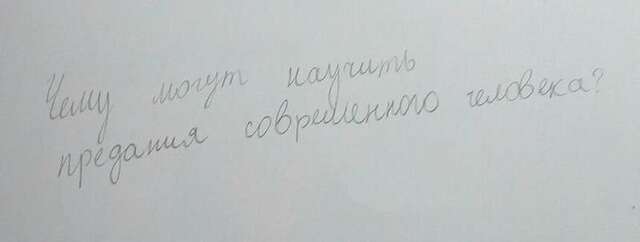 Чему могут научить
предания современного человека?